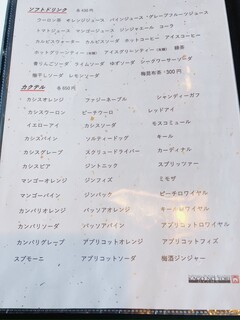 ソフトドリンク 各350円
ウーロン茶 オレンジジュース パインジュース グレープフルーツジュース
トマトジュース マンゴージュース ジンジャエール コーラ
カルピスウォーター カルピスソーダ ホットコーヒー アイスコーヒー
ホットグリーンティー(有糖) アイスグリーンティー(有糖) 緑茶
青りんごソーダ ライムソーダ ゆずソーダ シークワーサーソーダ
梅干しソーダ レモンソーダ 梅昆布茶・300円
カクテル 各550円
カシスオレンジ ファジーネーブル シャンディーガフ
カシスウーロン ピーチウーロン レッドアイ
イエローアイ カシスソーダ モスコミュール
カシスパイン ソルティードッグ キール
カシスグレープ スクリュードライバー カーディナル
カシスピア ジントニック スプリッツァー
マンゴーオレンジ ジンフィズ ミモザ
マンゴーパイン ジンバック ピーチロワイヤル
カンパリオレンジ パッソアオレンジ キールロワイヤル
カンパリソーダ パッソアパイン アプリコットロワイヤル
カンパリグレープ アプリコットオレンジ アプリコットフィズ
スプモーニ アプリコットソーダ 梅酒ジンジャー